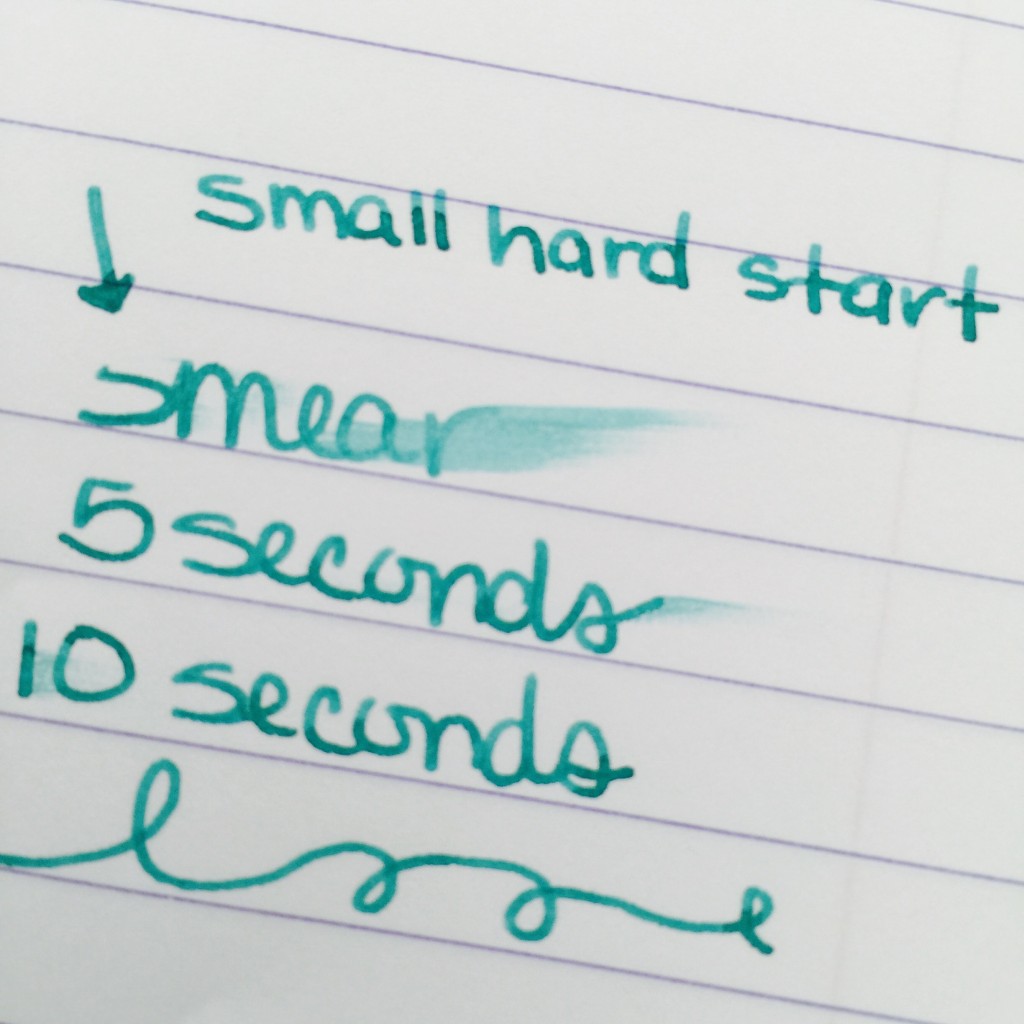 small hard start
smear
5 seconds
10 seconds